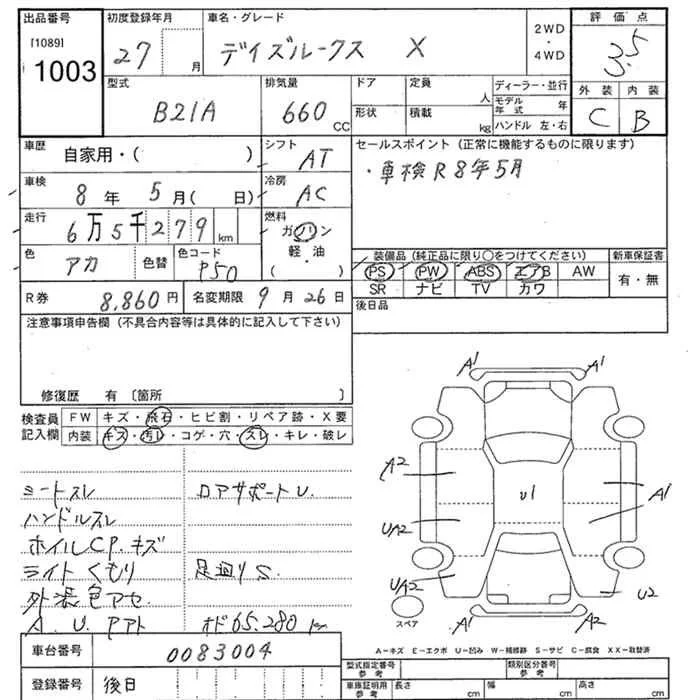 出品番号 初度登録年月 車名・グレード 2WD・4WD 評価点
[1089]
1003 27 月 デイズルークス X 3.5
型式 排気量 ドア 定員 人 ディーラー・並行 外装 内装
B21A 660cc 形状 積載 kg モデル年式 年 C B
ハンドル 左・右
車歴 自家用・( ) シフト AT セールスポイント(正常に機能するものに限ります)
車検 8年5月( 日) 冷房 AC ・車検R8年5月
走行 6万5千279km 燃料 ガソリン
軽・油
( )
色 アカ 色替 色コード P50
装備品(純正品に限り○をつけてください) 新車保証書
PS PW ABS エアB AW 有・無
SR ナビ TV カワ
R券 8,860円 名変期限 9月26日 後日品
注意事項申告欄(不具合内容等は具体的に記入して下さい)
修復歴 有〔箇所 〕
検査員記入欄 FW キズ・飛石・ヒビ割・リペア跡・X要
内装 キズ・汚レ・コゲ・穴・スレ・キレ・破レ
シートスレ ロアサポートU.
ハンドルスレ
ホイルCP.キズ
ライトくもり 足廻りS
外装色アセ
A.U.Pアト オド65,280km
A1 A1
A2 U1 A1
UA2
UA2 U2
スペア A1 A2
A-キズ E-エクボ U-凹み W-補修跡 S-サビ C-腐食 XX-取替済
車台番号 0083004
登録番号 後日
型式指定番号 類別区分番号
車庫証明用参考 長さ cm 幅 cm 高さ cm